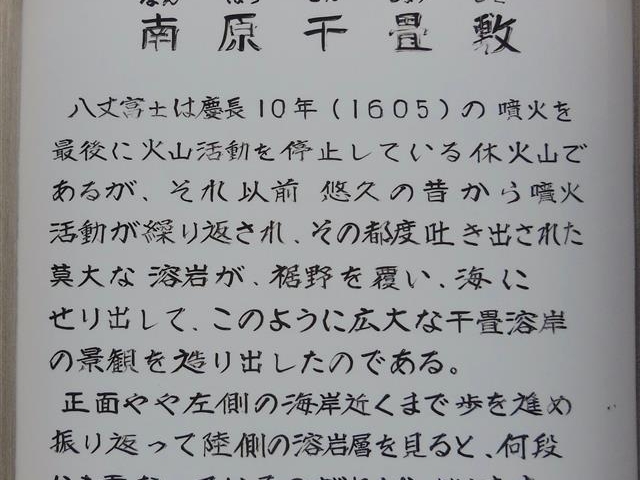 南原千畳敷
八丈富士は慶長10年(1605)の噴火を
最後に火山活動を停止している休火山で
あるが、それ以前 悠久の昔から噴火
活動が繰り返され、その都度吐き出された
莫大な溶岩が、裾野を覆い、海に
せり出して、このように広大な千畳溶岸
の景観を造り出したのである。
正面やや左側の海岸近くまで歩を進め
振り返って陸側の溶岩層を見ると、何段